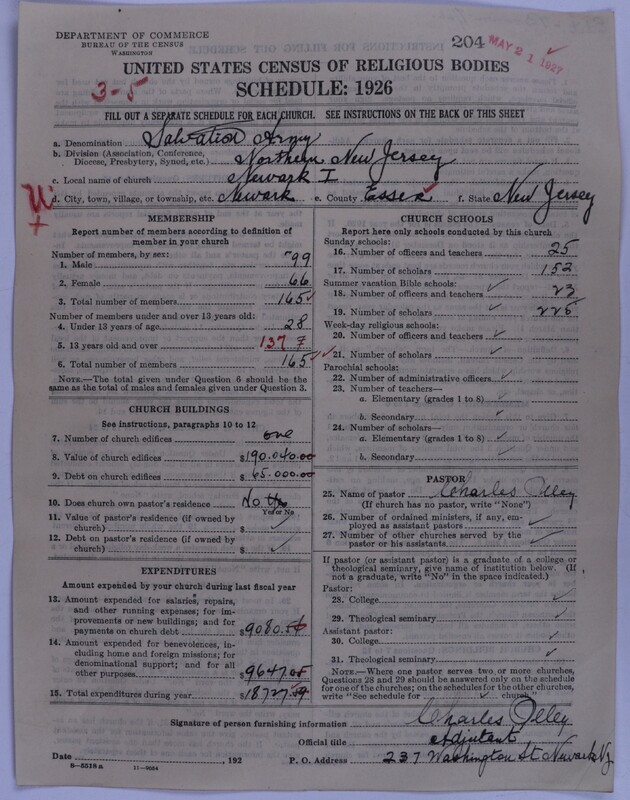 DEPARTMENT OF COMMERCE
BUREAU OF THE CENSUS
WASHINGTON
204
MAY 21 1927
UNITED STATES CENSUS OF RELIGIOUS BODIES
3-5
SCHEDULE: 1926
FILL OUT A SEPARATE SCHEDULE FOR EACH CHURCH. SEE INSTRUCTIONS ON THE BACK OF THIS SHEET
a. Denomination Salvation Army
b. Division (Association, Conference, Diocese, Presbytery, Synod, etc.) Northern New Jersey
c. Local name of church Newark I
d. City, town, village, or township, etc. Newark e. County Essex f. State New Jersey
MEMBERSHIP
Report number of members according to definition of member in your church
Number of members, by sex:
1. Male 99
2. Female 66
3. Total number of members 165
Number of members under and over 13 years old:
4. Under 13 years of age 28
5. 13 years old and over 137
6. Total number of members 165
NOTE.—The total given under Question 6 should be the same as the total of males and females given under Question 3.
CHURCH BUILDINGS
See instructions, paragraphs 10 to 12
7. Number of church edifices one
8. Value of church edifices $190.040.00
9. Debt on church edifices $65.000.00
10. Does church own pastor's residence No
Yes or No
11. Value of pastor's residence (if owned by church) $
12. Debt on pastor's residence (if owned by church) $
EXPENDITURES
Amount expended by your church during last fiscal year
13. Amount expended for salaries, repairs, and other running expenses; for improvements or new buildings; and for payments on church debt $9080.54
14. Amount expended for benevolences, including home and foreign missions; for denominational support; and for all other purposes $9647.05
15. Total expenditures during year $18727.59
CHURCH SCHOOLS
Report here only schools conducted by this church
Sunday schools:
16. Number of officers and teachers 25
17. Number of scholars 152
Summer vacation Bible schools:
18. Number of officers and teachers 23
19. Number of scholars 225
Week-day religious schools:
20. Number of officers and teachers
21. Number of scholars
Parochial schools:
22. Number of administrative officers
23. Number of teachers—
a. Elementary (grades 1 to 8)
b. Secondary
24. Number of scholars—
a. Elementary (grades 1 to 8)
b. Secondary
PASTOR
25. Name of pastor Charles Olley
(If church has no pastor, write "None")
26. Number of ordained ministers, if any, employed as assistant pastors
27. Number of other churches served by the pastor or his assistants
If pastor (or assistant pastor) is a graduate of a college or theological seminary, give name of institution below. (If not a graduate, write "No" in the space indicated.)
Pastor:
28. College
29. Theological seminary
Assistant pastor:
30. College
31. Theological seminary
NOTE.—Where one pastor serves two or more churches, Questions 28 and 29 should be answered only on the schedule for one of the churches; on the schedules for the other churches, write "See schedule for church"
Signature of person furnishing information Charles Olley
Official title Adjutant
Date , 192 P. O. Address 237 Washington St Newark NJ
8-5518 a 11-9054